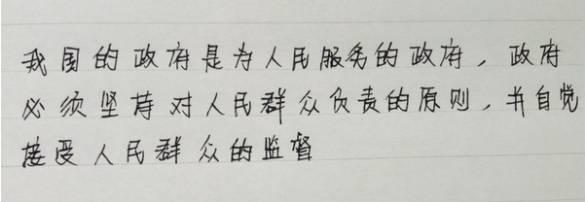 我国的政府是为人民服务的政府，政府
必须坚持对人民群众负责的原则，并自觉
接受人民群众的监督